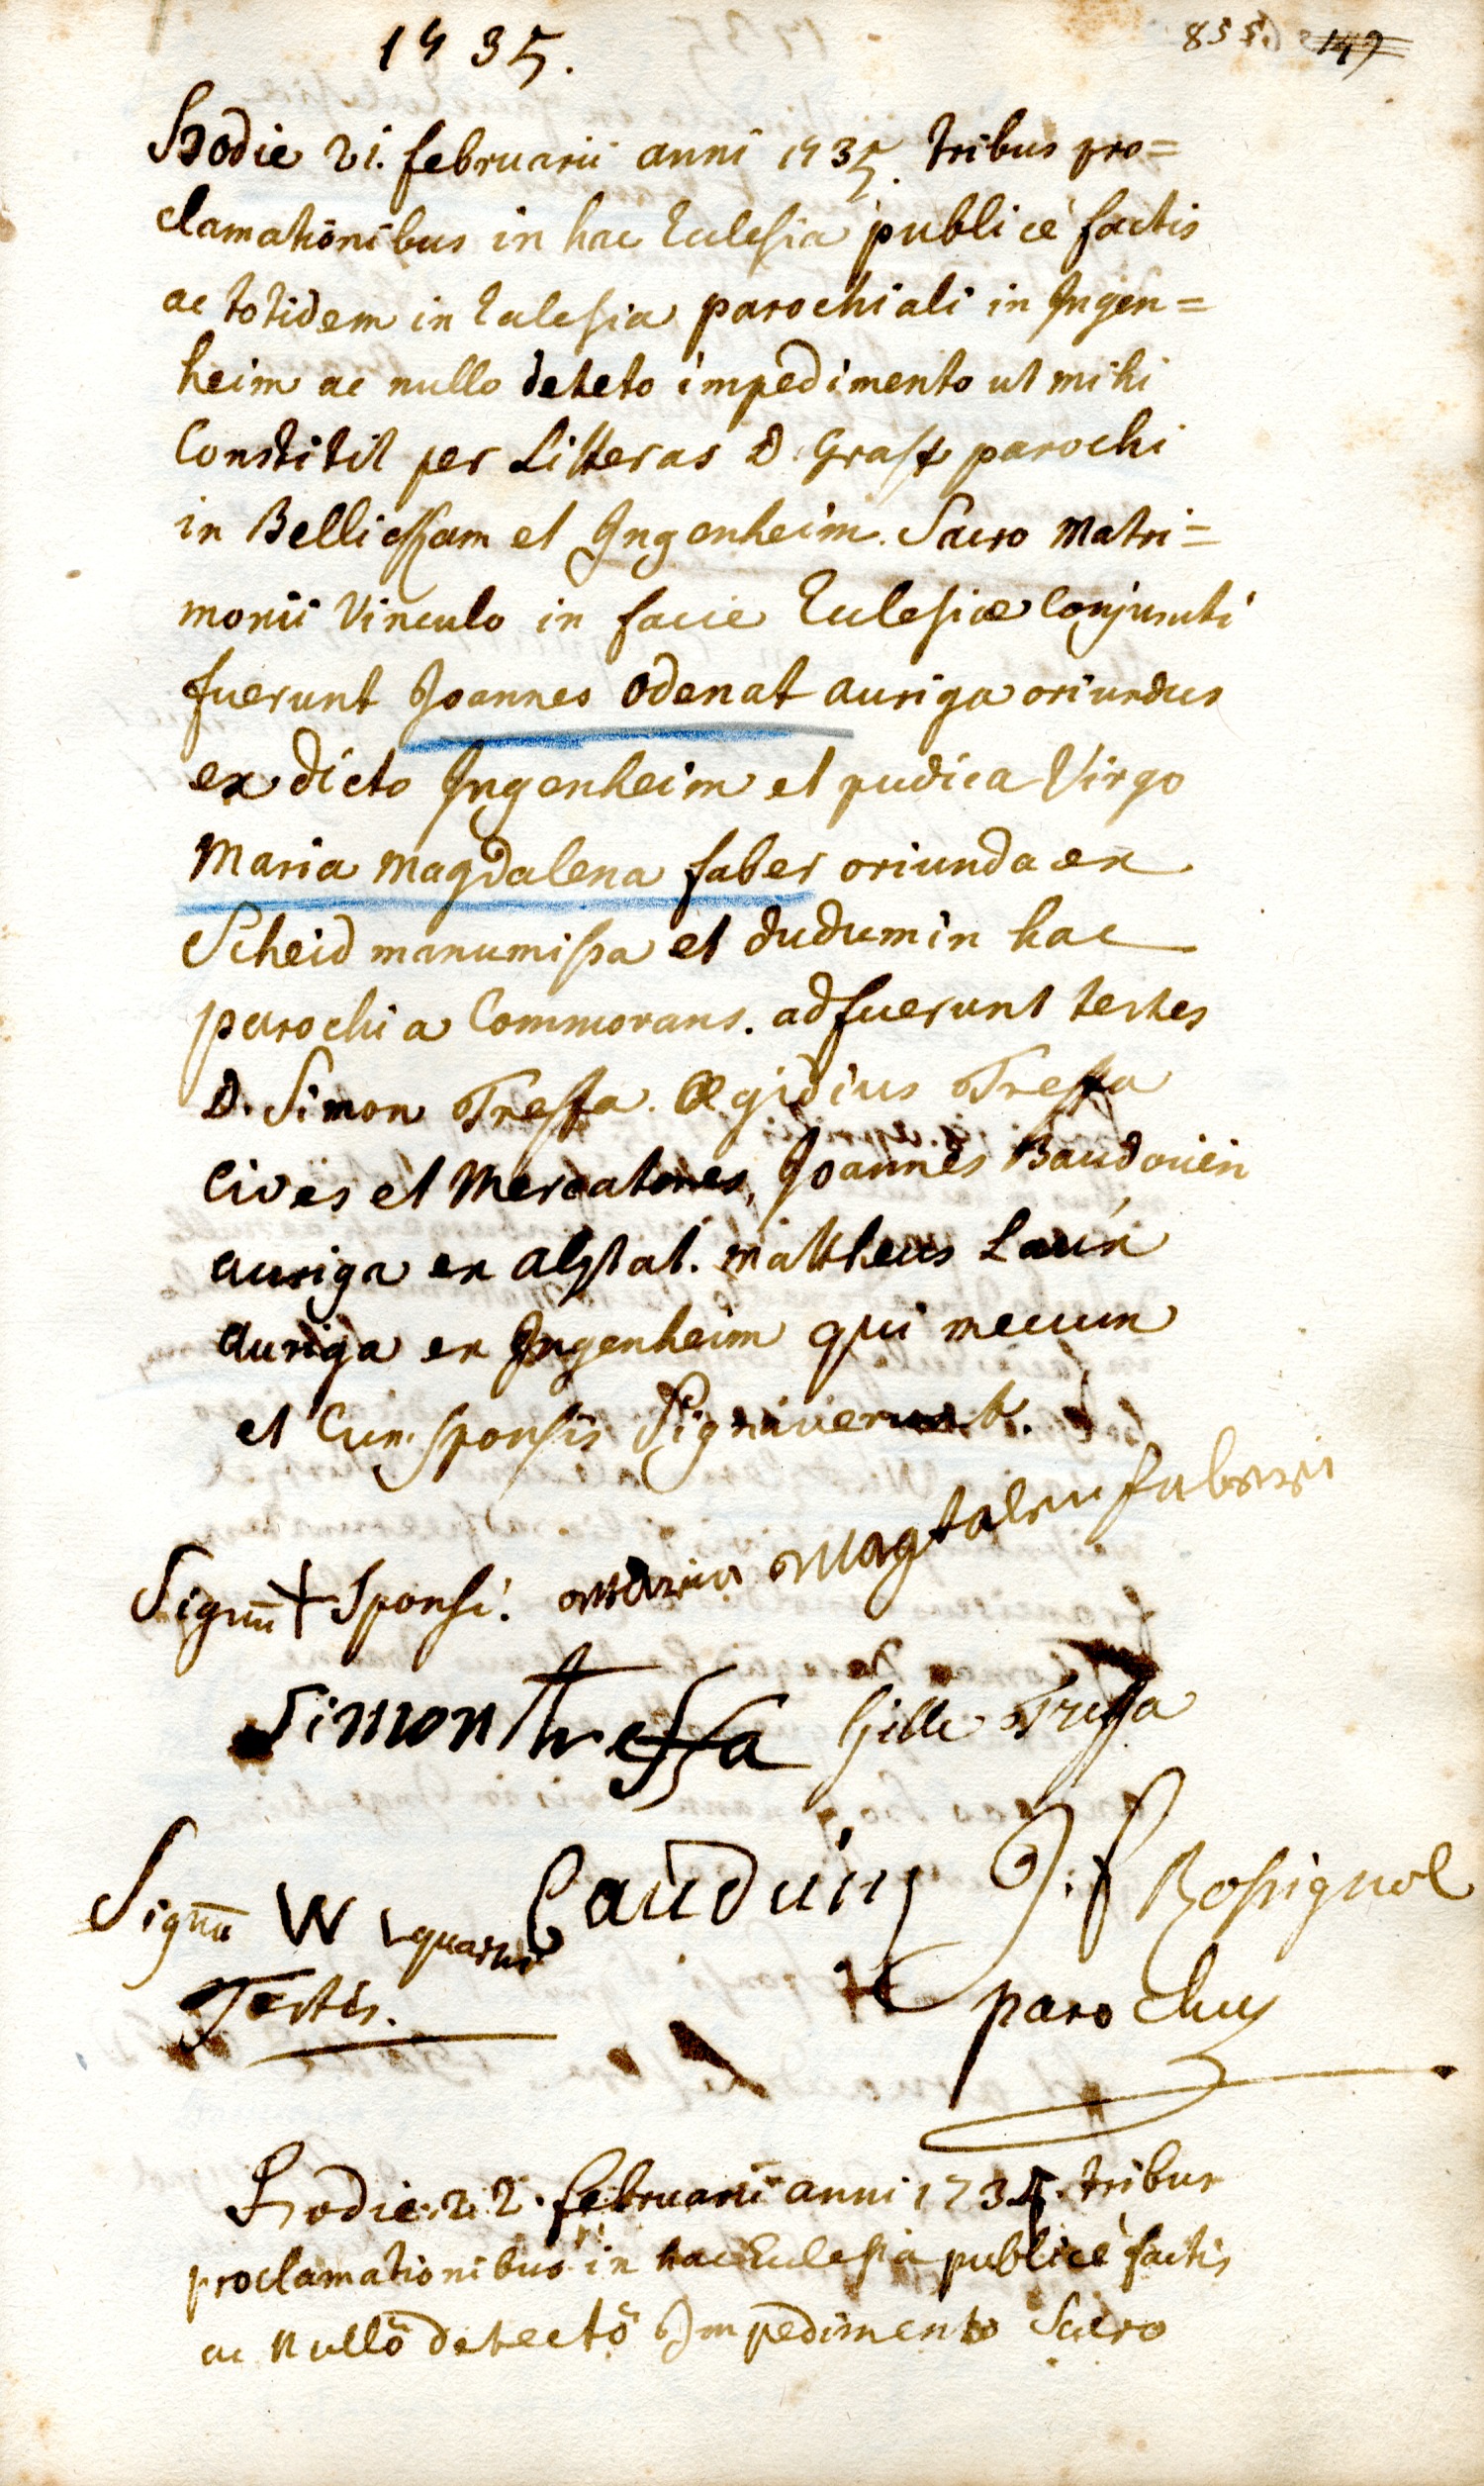 1735.
855. 149
Hodie 21. februarii anni 1735. tribus pro=
clamationibus in hac Ecclesia publicè factis
ac totidem in Ecclesia parochiali in Ingen=
heim ac nullo deteto impedimento ut mihi
Constitit per Litteras D. Graff parochi
in Bellicssam et Ingenheim. Sacro Matri=
monii Vinculo in facie Ecclesiae Conjuncti
fuerunt Joannes Odenat auriga oriundus
ex dicto Ingenheim et pudica Virgo
Maria Magdalena faber oriunda ex
Scheid manumissa et dudum in hac
parochia Commorans. adfuerunt testes
D. Simon Treffa. Ægidius Treffa
Cives et Mercatores, Joannes Baudouin
auriga ex alstat. Mattheus Laúr
auriga ex Ingenheim qui mecum
et Cum sponsis Signaverunt.
Signū + Sponsi. Maria Magtalena faberin
Simon treffa Gille Treffa
Signū W quarti Bauduin J: f Rossignol
Testis. parochus
Hodie 22. februarii anni 1735. tribus
proclamationibus in hac Ecclesia publicè factis
ac Nullo detecto Impedimento Sacro